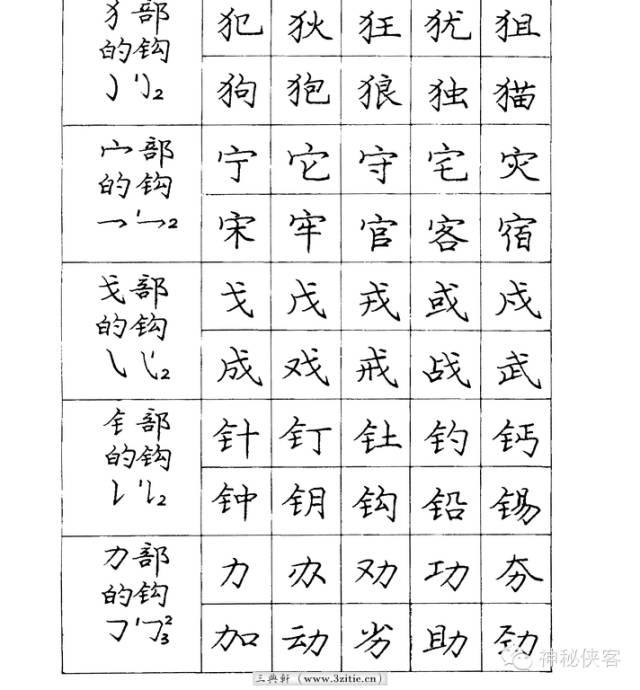 犭部
的钩
犯 狄 狂 犹 狙
狗 狍 狼 独 猫
宀部
的钩
宁 它 守 宅 灾
宋 牢 官 客 宿
戈部
的钩
戈 戊 戎 或 戍
成 戏 戒 战 武
钅部
的钩
针 钉 钍 钓 钙
钟 钥 钩 铅 锡
力部
的钩
力 办 劝 功 夯
加 动 劣 助 劲
神秘侠客
三典軒(www.3zitie.cn)